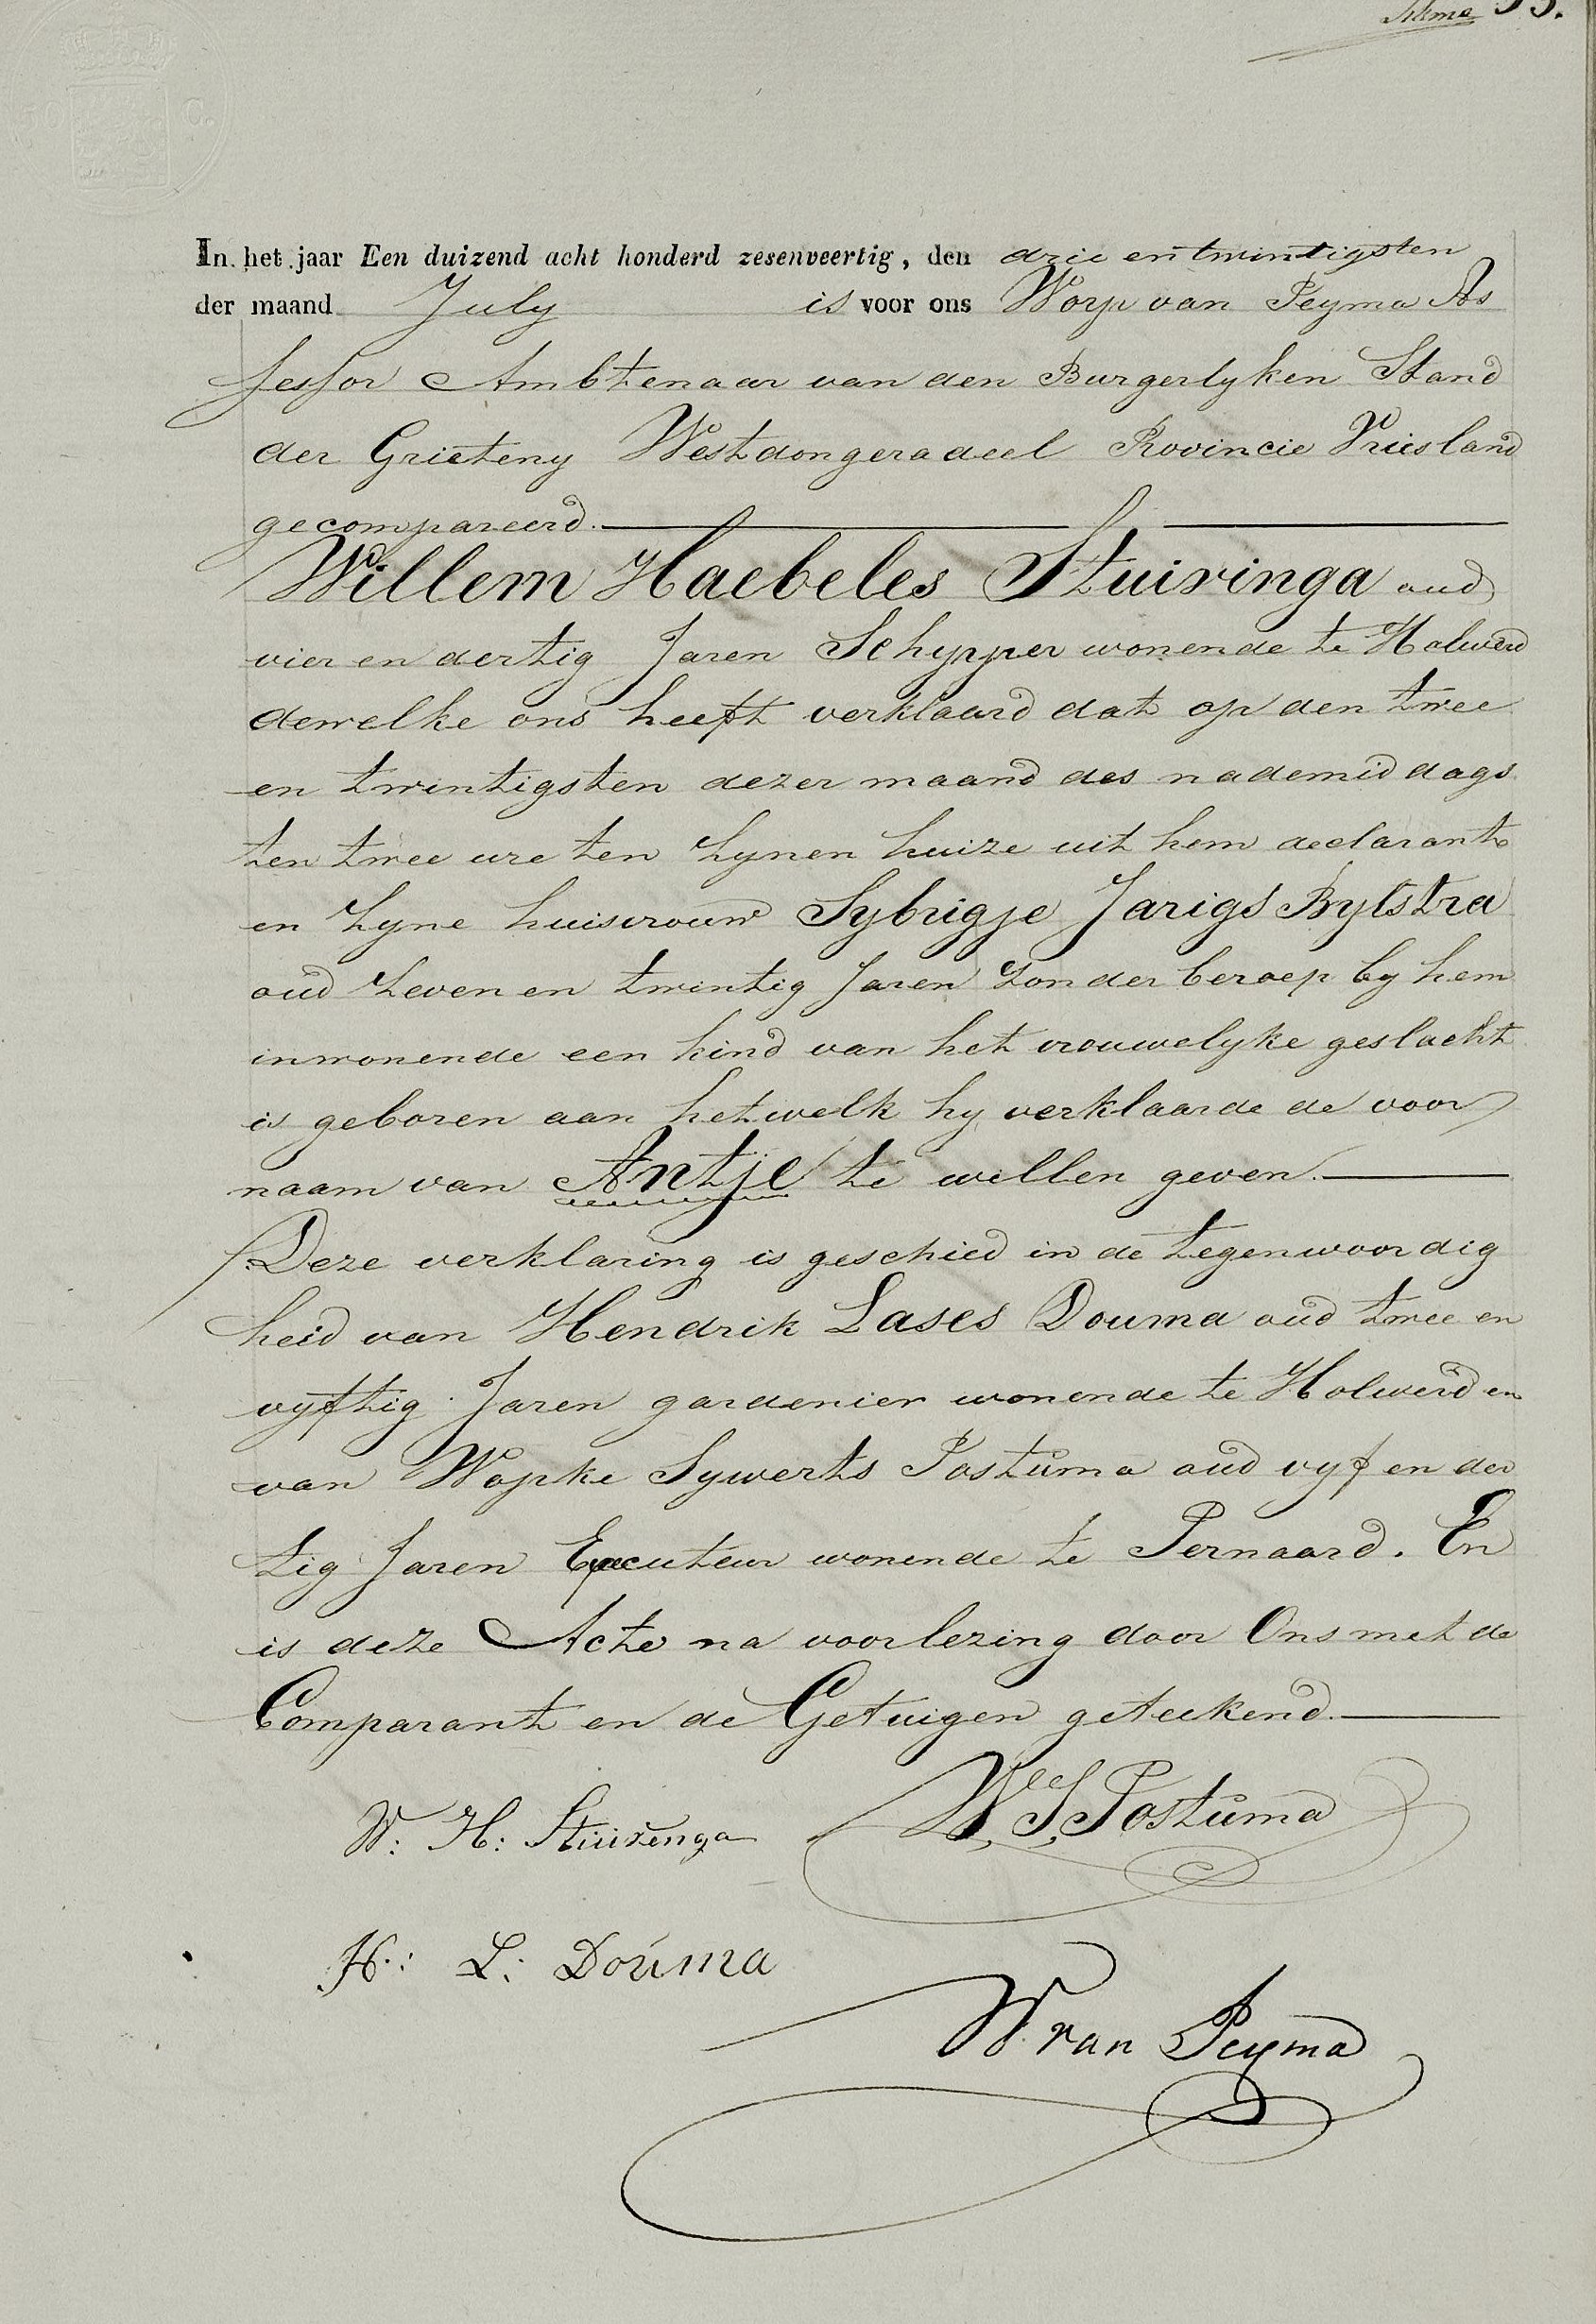 In het jaar Een duizend acht honderd zesenveertig, den drie en twintigsten
der maand July is voor ons Worp van Peyma As
sessor Ambtenaar van den Burgerlyken Stand
der Grieteny Westdongeradeel Provincie Vriesland
gecompareerd.
Willem Haebeles Stuivinga oud
vier en dertig Jaren Schypper wonende te Holwerd
dewelke ons heeft verklaard dat op den twee
en twintigsten dezer maand des nademiddags
ten twee ure ten zynen huize uit hem declarant
en zyne huisvrouw Sybrigje Jarigs Bylstra
oud zeven en twintig Jaren zonder beroep by hem
inwonende een kind van het vrouwelyke geslacht
is geboren aan hetwelk hy verklaarde de voor
naam van Antje te willen geven.
Deze verklaring is geschied in de tegenwoordig
heid van Hendrik Lases Douma oud twee en
vyftig Jaren gardenier wonende te Holwerd en
van Wopke Sywerts Postuma oud vyf en der
tig Jaren Executeur wonende te Ternaard. En
is deze Acte na voorlezing door Ons met de
Comparant en de Getuigen geteekend.
W. S. Postuma
W: H: Stuivenga
H: L: Douma
W van Peyma